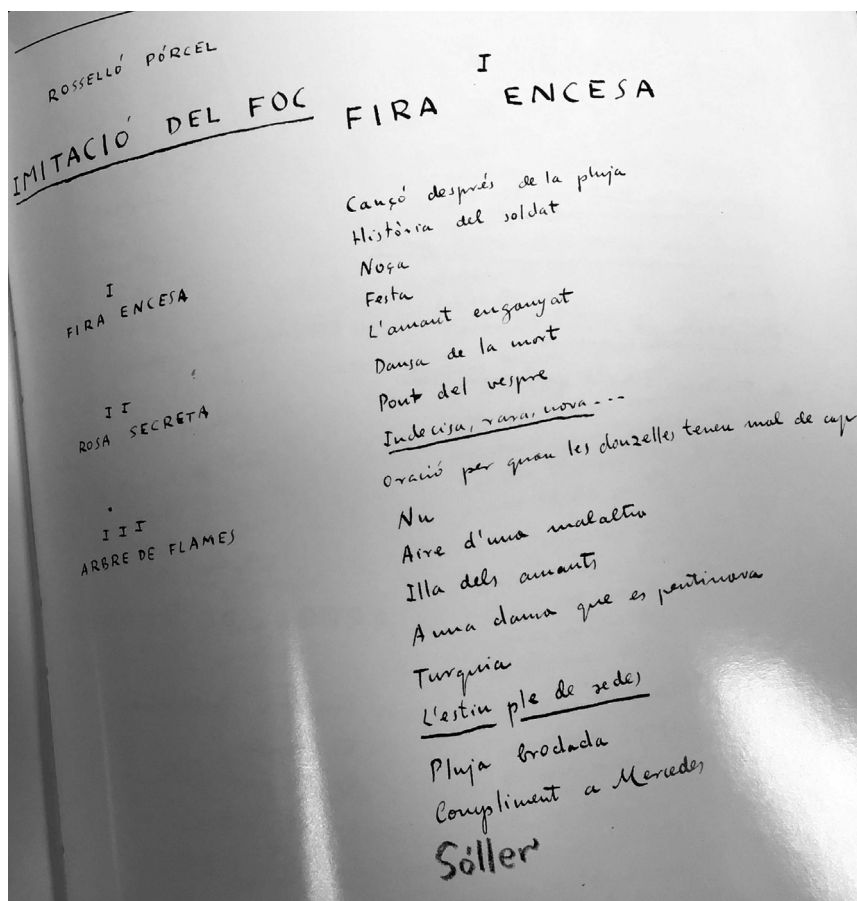 ROSSELLÓ PÓRCEL
IMITACIÓ DEL FOC
I
FIRA ENCESA
II
ROSA SECRETA
III
ARBRE DE FLAMES
I
FIRA ENCESA
Cançó després de la pluja
Història del soldat
Noça
Festa
L'amant enganyat
Dansa de la mort
Pont del vespre
Indecisa, rara, nova...
Oració per quan les donzelles tenen mal de cap
Nu
Aire d'una malaltia
Illa dels amants
A una dama que es pentinava
Turquia
L'estiu ple de sedes
Pluja brodada
Compliment a Mercedes
Sóller